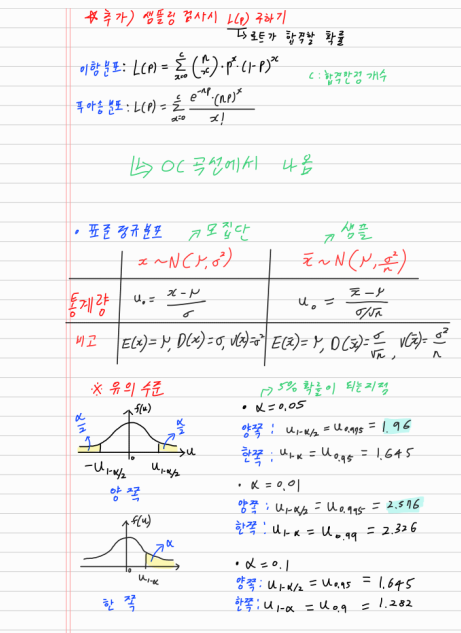 ※ 추가) 샘플링 검사시 L(P) 구하기
↳ 로트가 합격할 확률
이항분포: L(P) = Σ_{x=0}^{c} (n x) · P^x · (1-P)^x
C: 합격판정 개수
푸아송분포: L(P) = Σ_{x=0}^{c} e^{-nP} · (nP)^x / x!
↳ OC 곡선에서 나옴
• 표준정규분포 ↗ 모집단 ↗ 샘플
x ~ N(μ, σ²) x̄ ~ N(μ, σ²/n)
통계량 u₀ = (x-μ)/σ u₀ = (x̄-μ)/(σ/√n)
비고 E(x) = μ, D(x) = σ, V(x) = σ² E(x̄) = μ, D(x̄) = σ/√n, V(x̄) = σ²/n
※ 유의 수준 ↱ 5% 확률이 되는지점
α/2 f(u) α/2
-u_{1-α/2} 0 u_{1-α/2} u
양 쪽
• α = 0.05
양쪽: u_{1-α/2} = u_{0.975} = 1.96
한쪽: u_{1-α} = u_{0.95} = 1.645
• α = 0.01
양쪽: u_{1-α/2} = u_{0.995} = 2.576
한쪽: u_{1-α} = u_{0.99} = 2.326
f(u) α
0 u_{1-α}
한 쪽
• α = 0.1
양쪽: u_{1-α/2} = u_{0.95} = 1.645
한쪽: u_{1-α} = u_{0.9} = 1.282